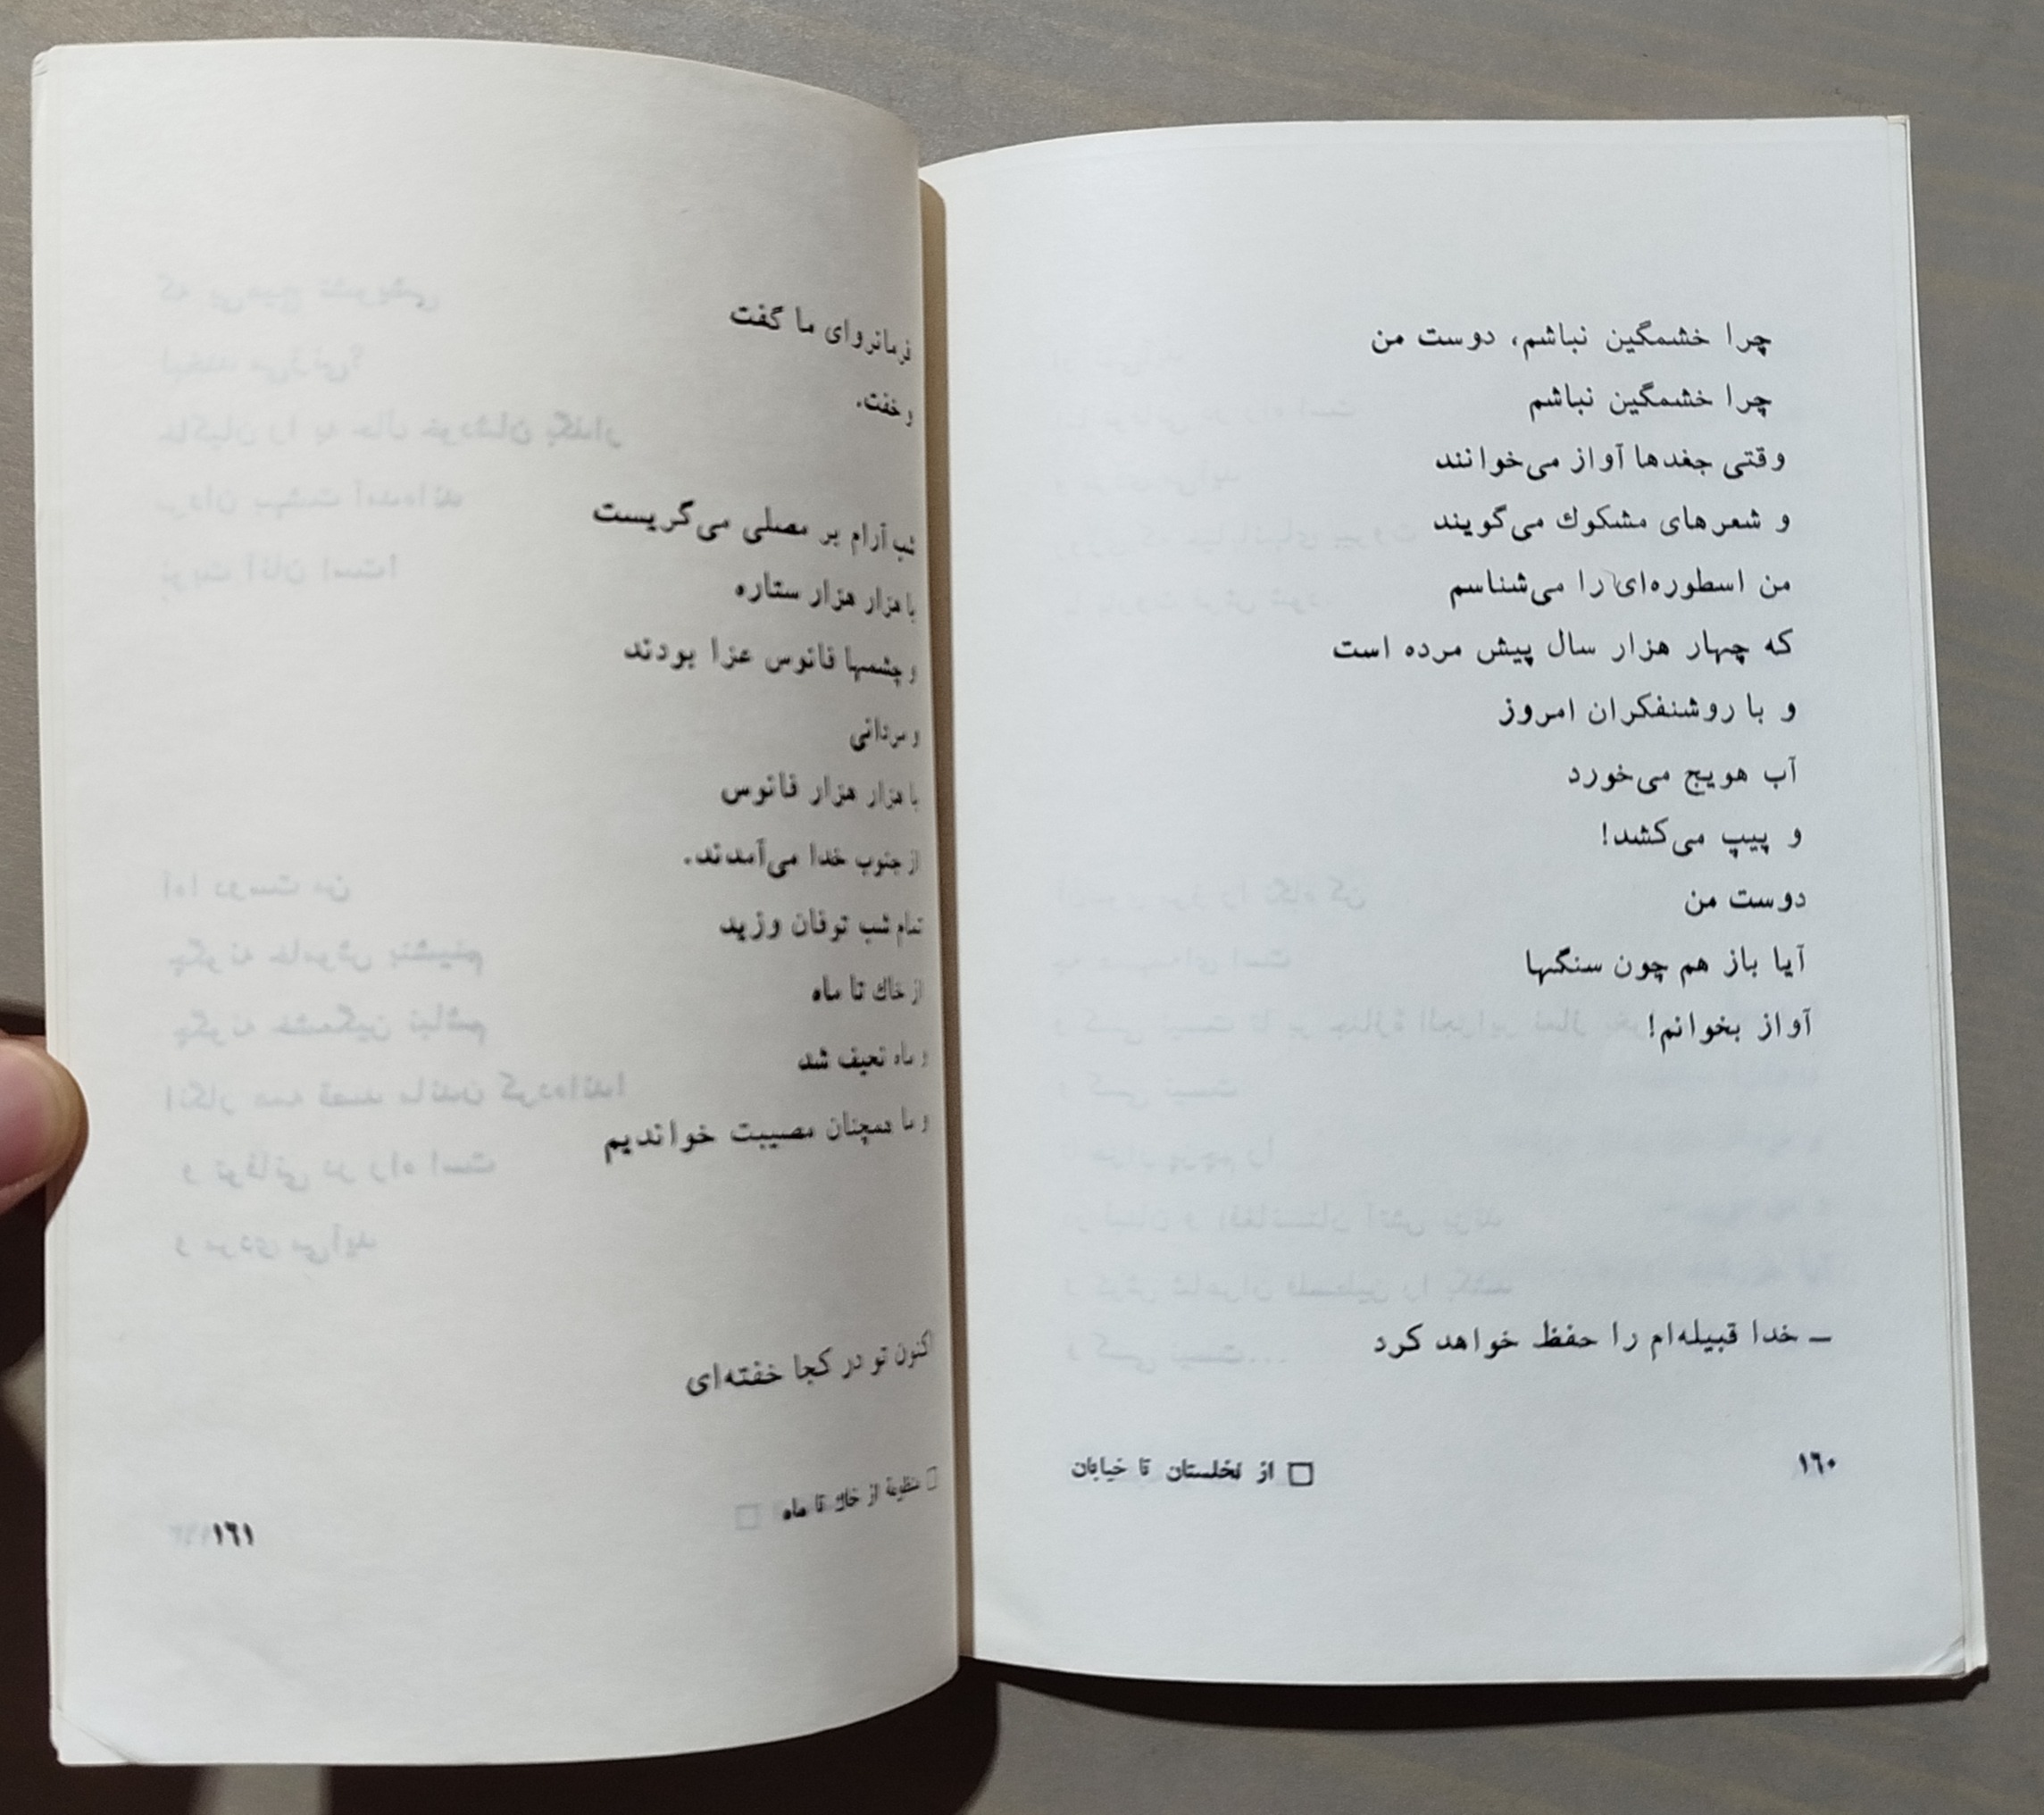 چرا خشمگین نباشم، دوست من
چرا خشمگین نباشم
وقتی جغدها آواز می‌خوانند
و شعرهای مشکوك می‌گویند
من اسطوره‌ای را می‌شناسم
که چهار هزار سال پیش مرده است
و با روشنفکران امروز
آب هویج می‌خورد
و پیپ می‌کشد!
دوست من
آیا باز هم چون سنگها
آواز بخوانم!
ـ خدا قبیله‌ام را حفظ خواهد کرد
□ از نخلستان تا خیابان
۱۶۰
فرمانروای ما گفت
و خفت.
شب آرام بر مصلی می‌گریست
با هزار هزار ستاره
و چشمها فانوس عزا بودند
و مردانی
با هزار هزار فانوس
از جنوب خدا می‌آمدند.
تمام شب توفان وزید
از خاك تا ماه
و ماه نحیف شد
و ما همچنان مصیبت خواندیم
اکنون تو در کجا خفته‌ای
□ منظومهٔ از خاك تا ماه
۱۶۱